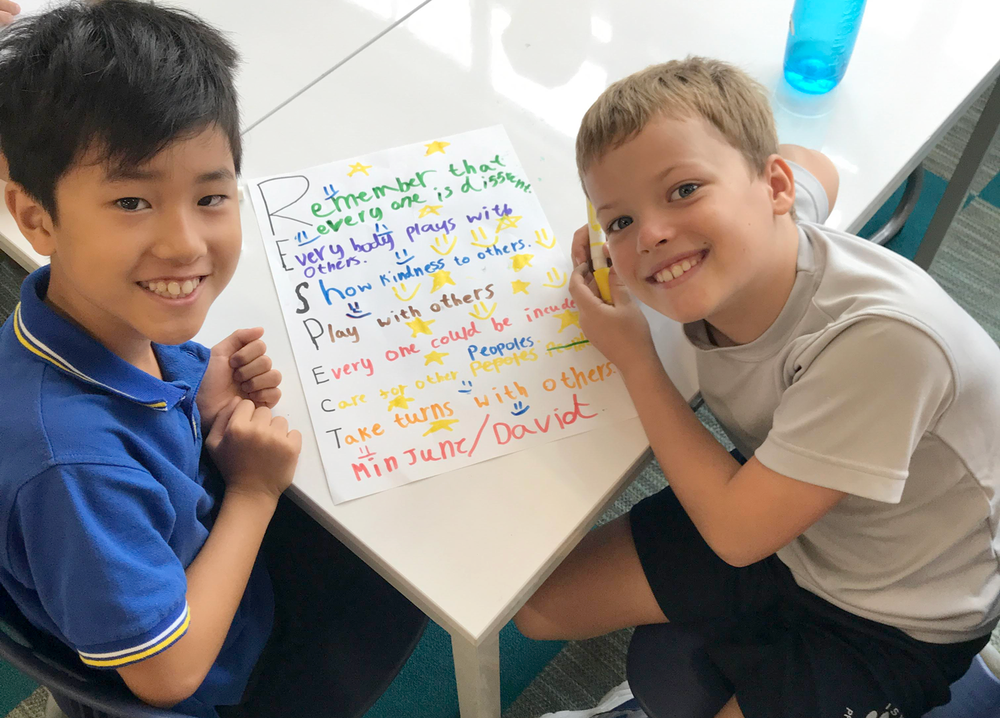 Remember that
every one is diffrent.
Every body plays with
others.
Show kindness to others.
Play with others
Every one could be incude
Care for other Pepoles
Peopoles
Take turns with others.
Minjune/David.